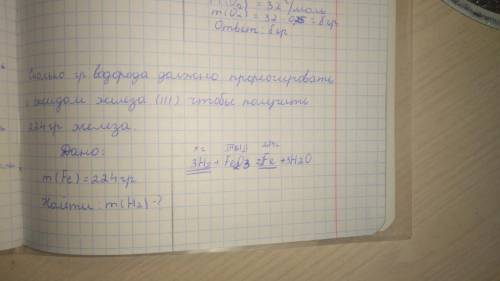 M(O₂) = 32 г/моль
m(O₂) = 32 · 0,25 = 8 гр
Ответ: 8 гр.
Сколько гр водорода должно прореогировать
с оксидом железа (III) чтобы получить
224 гр железа.
Дано:
m(Fe) = 224 гр
Найти: m(H₂) - ?
x г 224г
3H₂ + Fe₂O₃ = 2Fe + 3H₂O